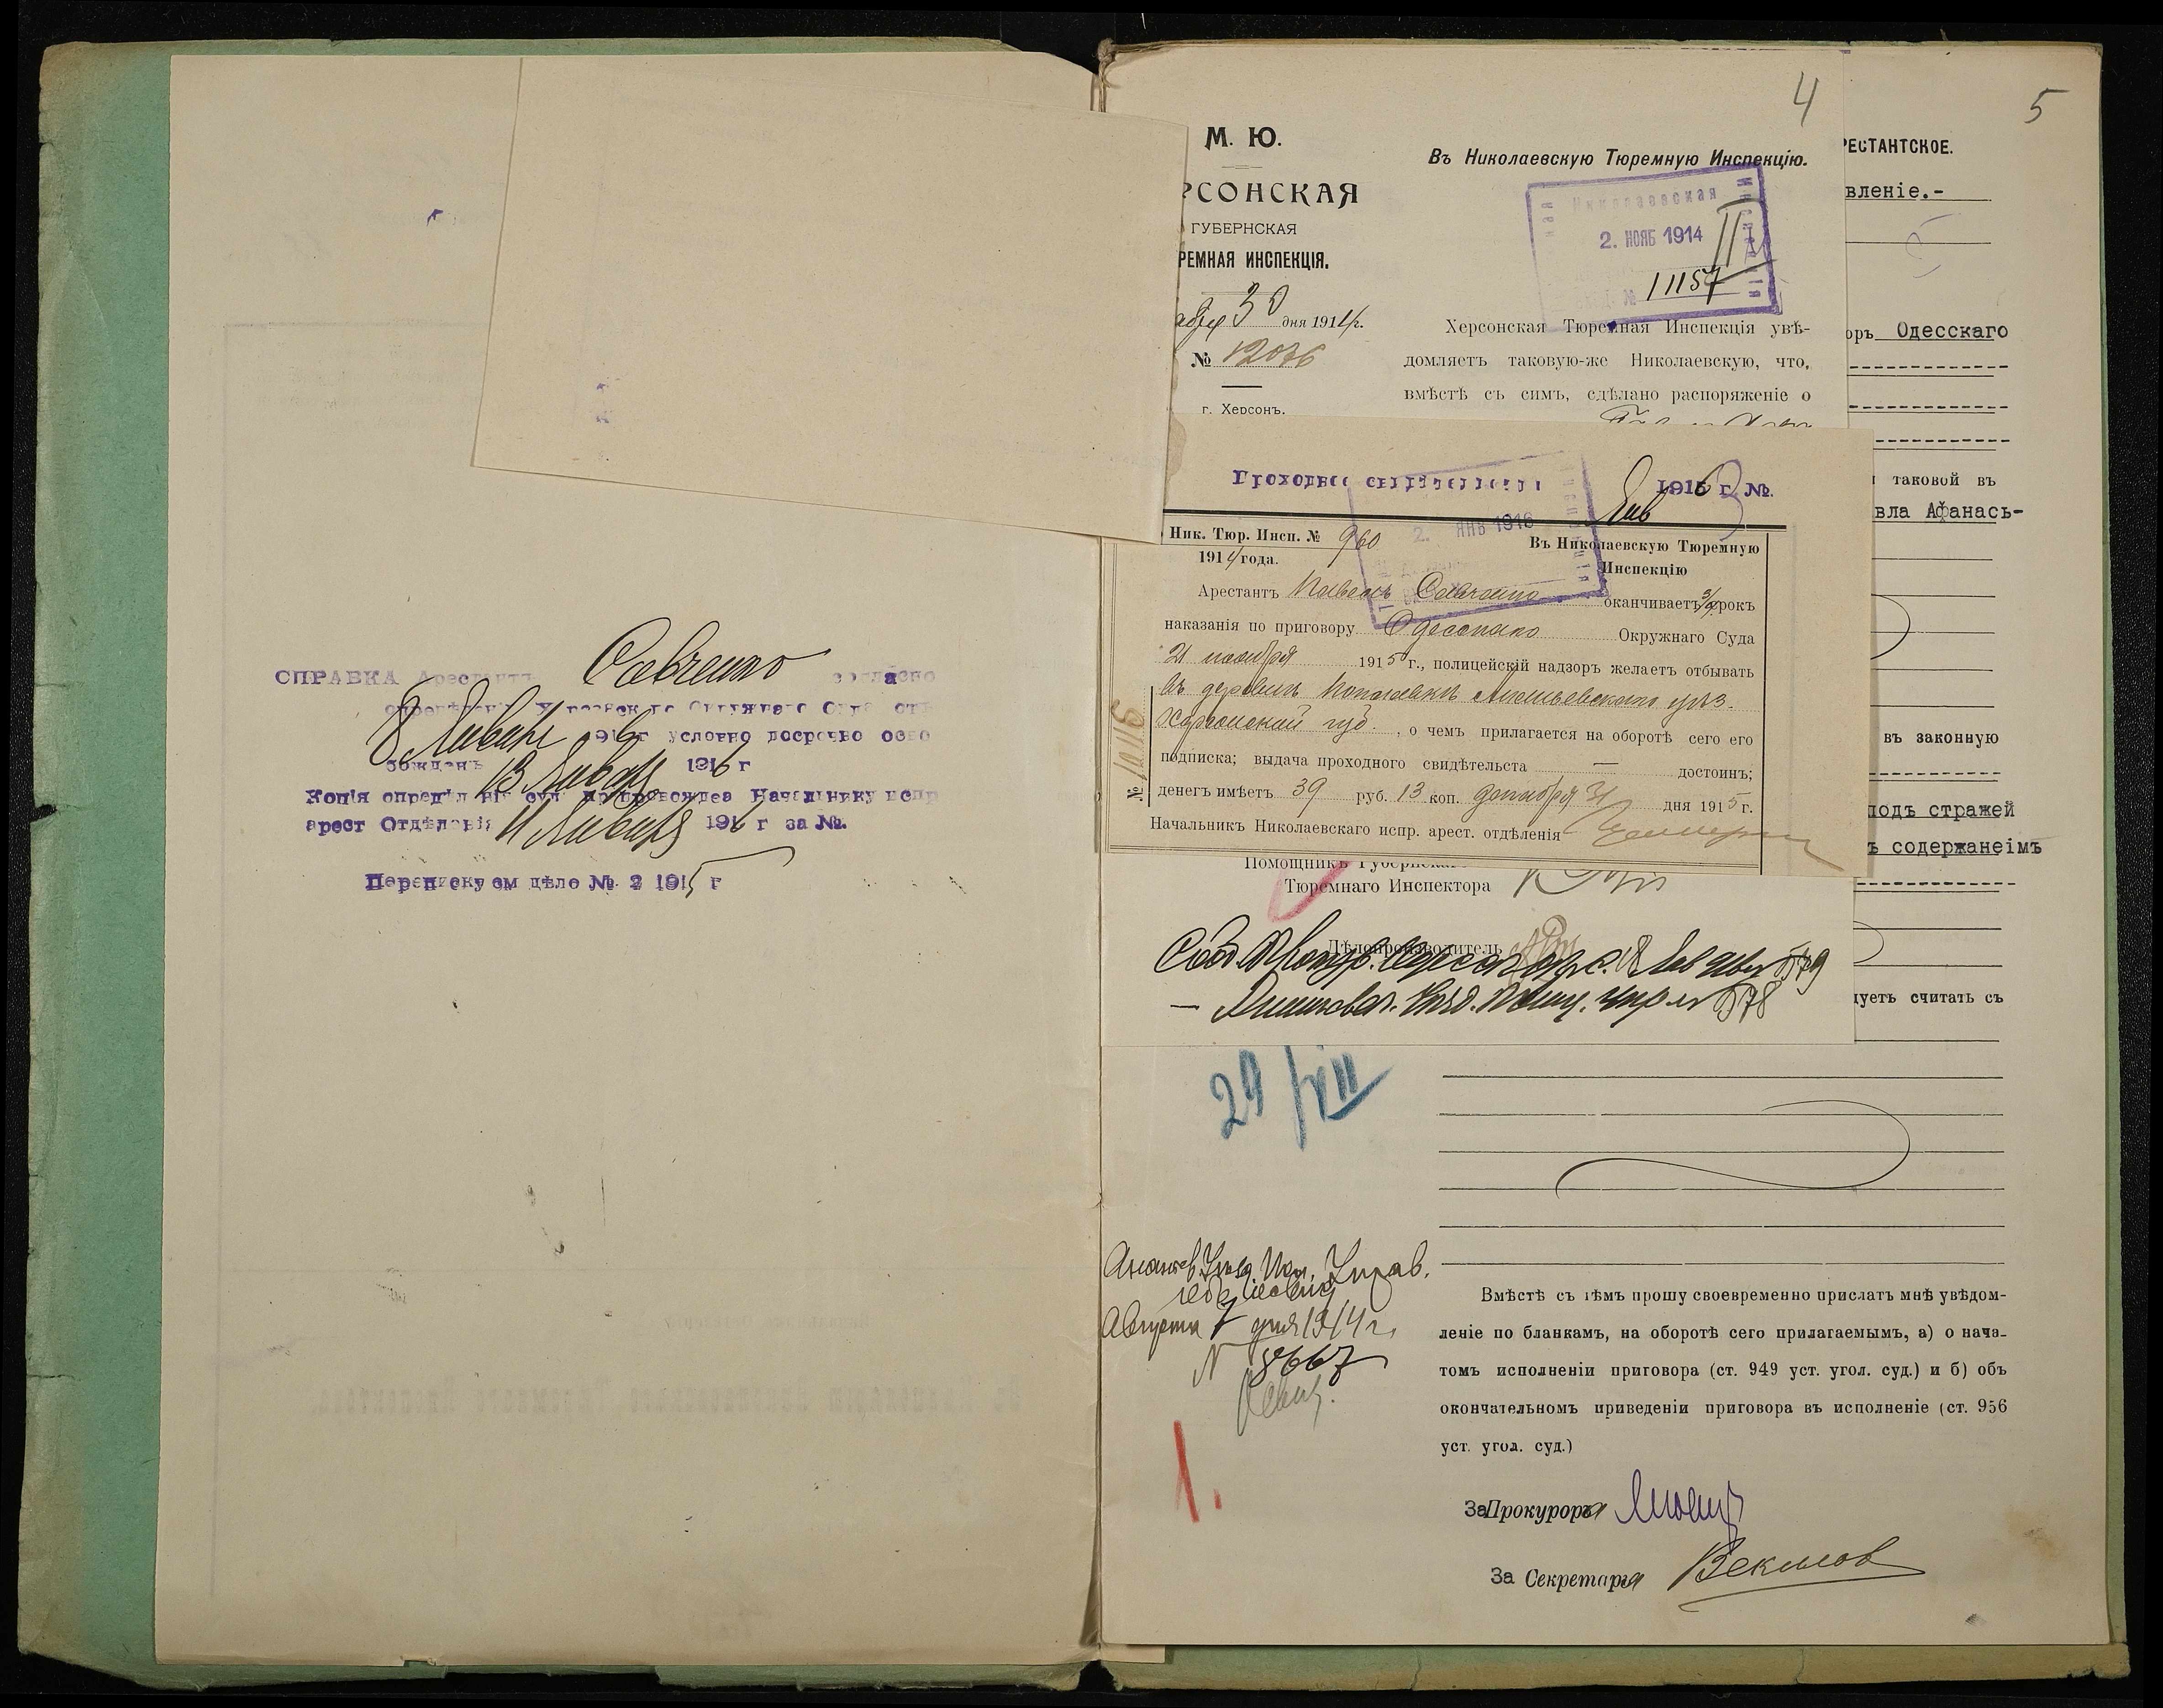 СПРАВКА Арестантъ Савченко согласно
опредѣленію Окружнаго Суда отъ
8 Января 1916 г условно досрочно осво
божденъ 13 Января 1916 г
Копія опредѣленія суда препровождена Начальнику испр
арест Отдѣленія 11 Января 1916 г за №.
Переписку см дѣло № 2 1915 г
4
М. Ю.
РСОНСКАЯ
ГУБЕРНСКАЯ
РЕМНАЯ ИНСПЕКЦІЯ.
абря 30 дня 1914 г.
№ 12076
г. Херсонъ.
Въ Николаевскую Тюремную Инспекцію.
Николаевская
2. НОЯБ 1914
№ 11157
Херсонская Тюремная Инспекція увѣ-
домляетъ таковую-же Николаевскую, что,
вмѣстѣ съ симъ, сдѣлано распоряженіе о
Проходное свидѣтельство
Янв 1916 г. №.
2. ЯНВ 1916
Ник. Тюр. Инсп. № 960
1914 года.
Въ Николаевскую Тюремную
Инспекцію
Арестантъ Павелъ Савченко оканчиваетъ 3/4 срокъ
наказанія по приговору Одесскаго Окружнаго Суда
21 ноября 1915 г., полицейскій надзоръ желаетъ отбывать
въ деревнѣ Ананьевскаго уѣз.
Херсонской губ., о чемъ прилагается на оборотѣ сего его
подписка; выдача проходного свидѣтельста — достоинъ;
денегъ имѣетъ 39 руб. 13 коп. декабря 31 дня 1915 г.
Начальникъ Николаевскаго испр. арест. отдѣленія
№ 10116
Помощникъ Губернскаго
Тюремнаго Инспектора
Дѣлопроизводитель
Сооб. Прокур. 579
578
5
РЕСТАНТСКОЕ.
вленіе.-
оръ Одесскаго
таковой въ
вла Афанась-
въ законную
подъ стражей
ъ содержанеімъ
дуетъ считать съ
29/VIII
Ананьев. Уѣзд. Пол. Управ.
Августа 7 дня 1914 г.
N 8667
1.
Вмѣстѣ съ тѣмъ прошу своевременно прислать мнѣ увѣдом-
леніе по бланкамъ, на оборотѣ сего прилагаемымъ, а) о нача-
томъ исполненіи приговора (ст. 949 уст. угол. суд.) и б) объ
окончательномъ приведеніи приговора въ исполненіе (ст. 956
уст. угол. суд.)
За Прокурора
За Секретаря Векилов